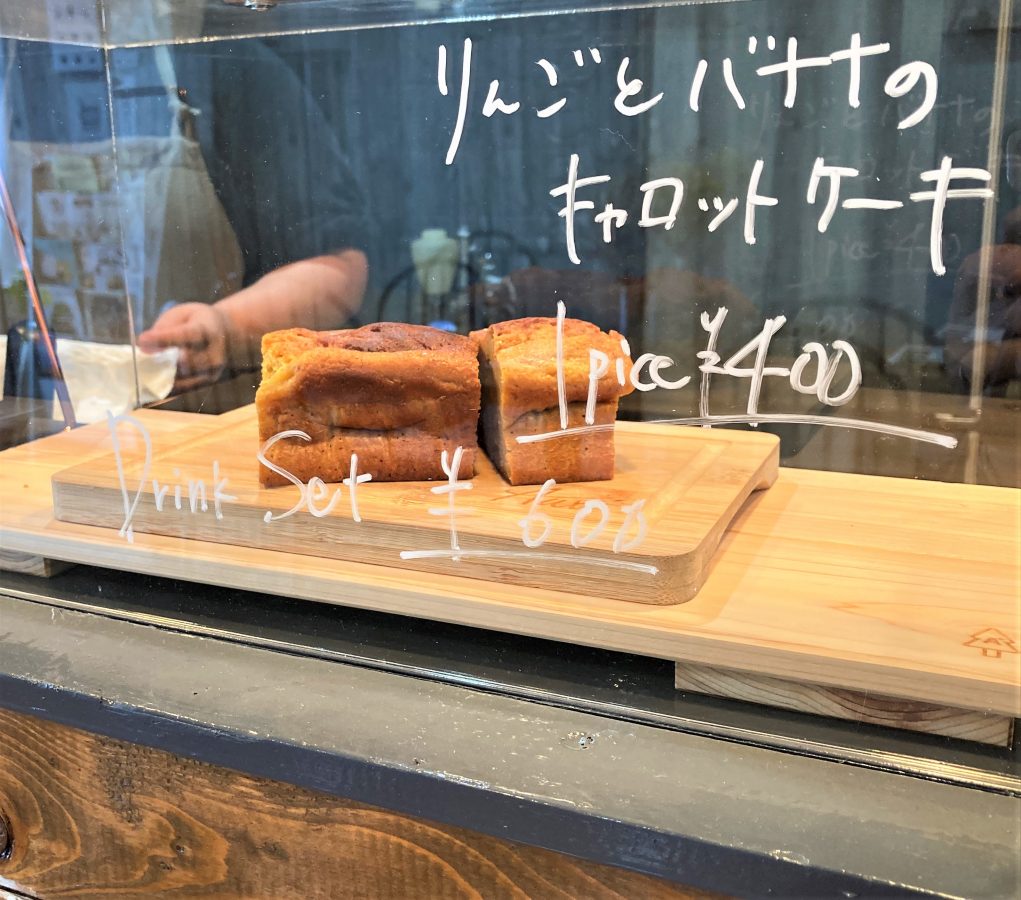 りんごとバナナの
キャロットケーキ
1pice ¥400
Drink Set ¥600